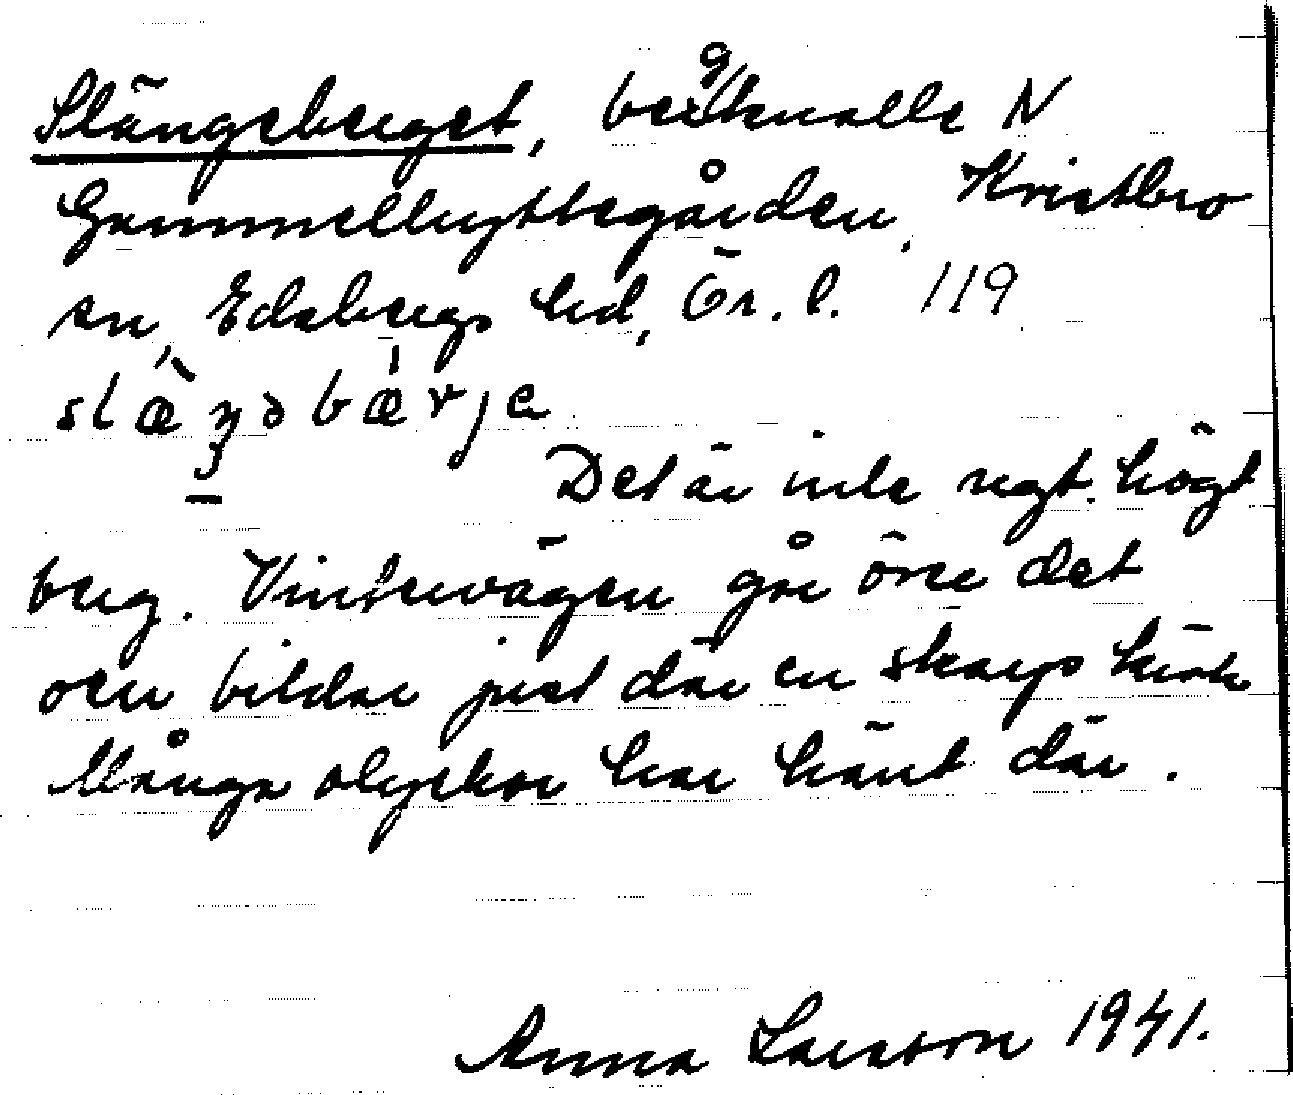 Slängeberget, bergknalle N
Gammelhyttegården, Kristbro
sn, Edsbergs hd, Ör. l. 119
slæ̀ŋəbær̀ja
Det är inte ngt högt
berg. Vintervägen går över det
och bildar just där en skarp krök
Många olyckor har hänt där.
Anna Larsson 1941.